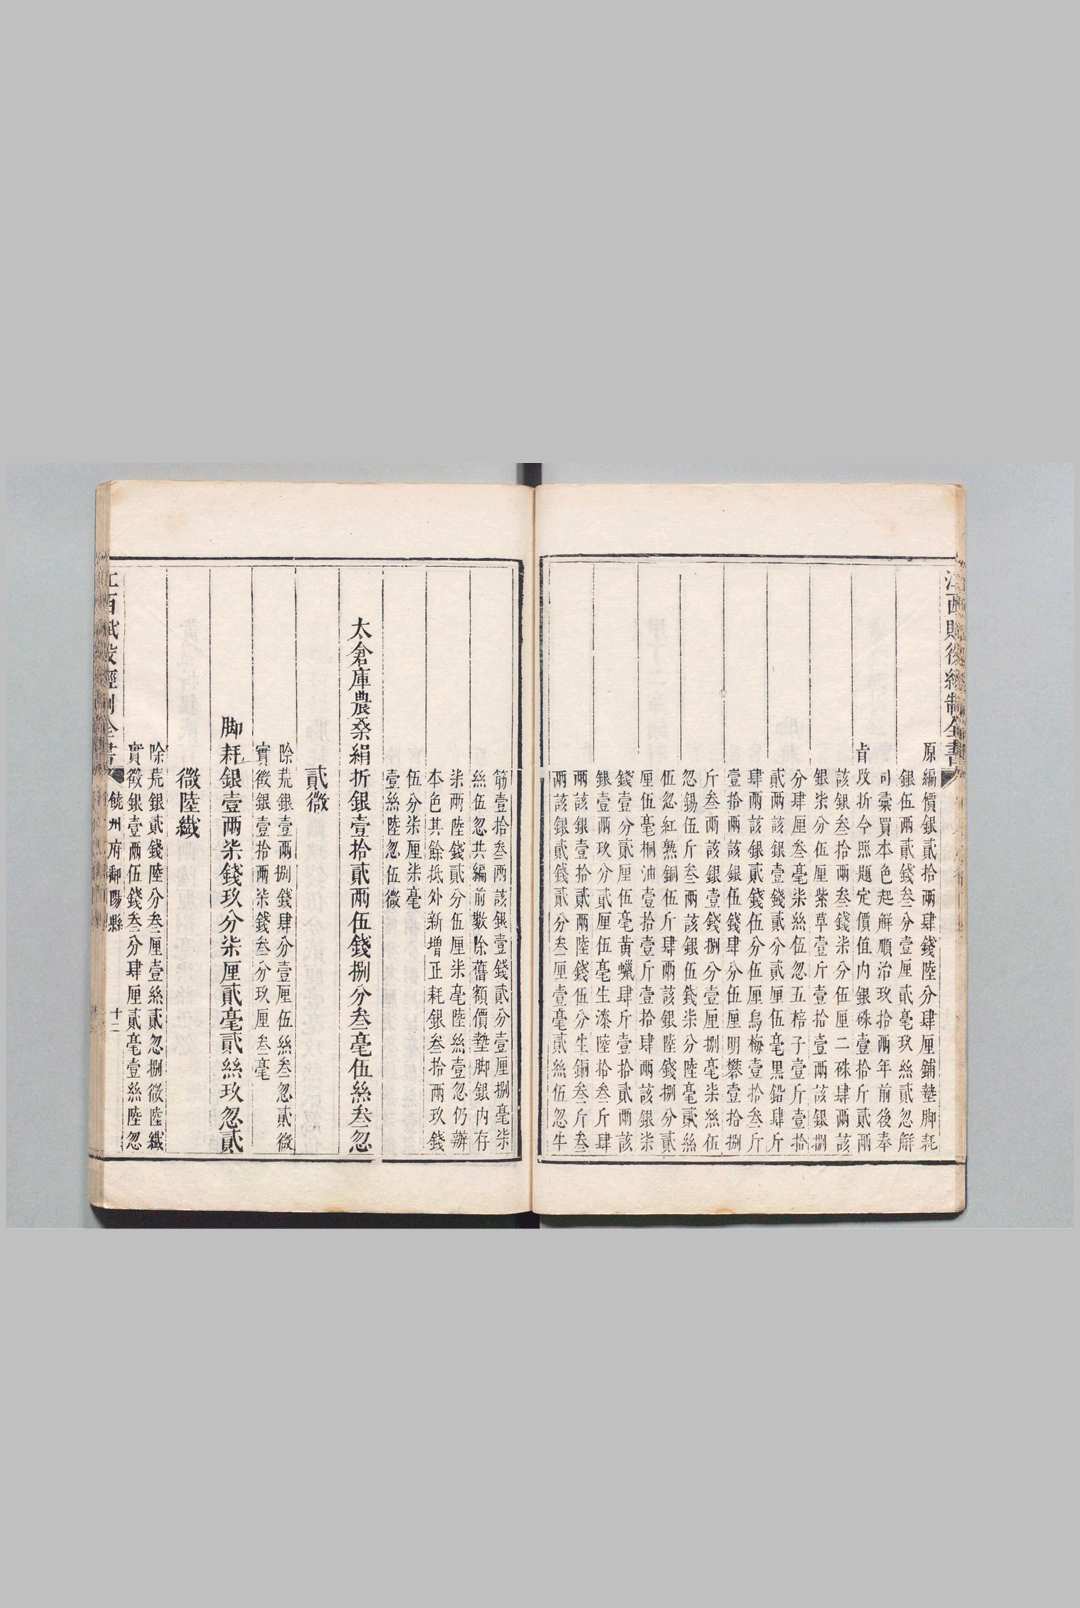 江西賦役經制全書
原編價銀貳拾兩肆錢陸分肆厘鋪墊脚耗
銀伍兩貳錢叁分壹厘貳毫玖絲貳忽觧
司彚買本色起觧順治玖拾兩年前後奉
旨改折今照題定價值內銀硃壹拾斤貳兩
該銀叁拾兩叁錢柒分伍厘二硃肆兩該
銀柒分伍厘紫草壹斤壹拾壹兩該銀捌
分肆厘叁毫柒絲伍忽五棓子壹斤壹拾
貳兩該銀壹錢貳分貳厘伍毫黑鉛肆斤
肆兩該銀貳錢伍分伍厘烏梅壹拾叁斤
壹拾兩該銀伍錢肆分伍厘明礬壹拾捌
斤叁兩該銀壹錢捌分壹厘捌毫柒絲伍
忽錫伍斤叁兩該銀伍錢柒分陸毫貳絲
伍忽紅熟銅伍斤肆兩該銀陸錢捌分貳
厘伍毫桐油壹拾壹斤壹拾肆兩該銀柒
錢壹分貳厘伍毫黃蠟肆斤壹拾貳兩該
銀壹兩玖分貳厘伍毫生漆陸拾叁斤肆
兩該銀壹拾貳兩陸錢伍分生銅叁斤叁
兩該銀貳錢貳分叁厘壹毫貳絲伍忽牛
筋壹拾叁兩該銀壹錢貳分壹厘捌毫柒
絲伍忽共編前數除舊額價墊脚銀內存
柒兩陸錢貳分伍厘柒毫陸絲壹忽仍辦
本色其餘抵外新增正耗銀叁拾兩玖錢
伍分柒厘柒毫
壹絲陸忽伍微
太倉庫農桑絹折銀壹拾貳兩伍錢捌分叁毫伍絲叁忽
貳微
除荒銀壹兩捌錢肆分壹厘伍絲叁忽貳微
實徵銀壹拾兩柒錢叁分玖厘叁毫
脚耗銀壹兩柒錢玖分柒厘貳毫貳絲玖忽貳
微陸纖
除荒銀貳錢陸分叁厘壹絲貳忽捌微陸纖
實徵銀壹兩伍錢叁分肆厘貳毫壹絲陸忽
江西賦役經制全書
饒州府鄱陽縣
十二